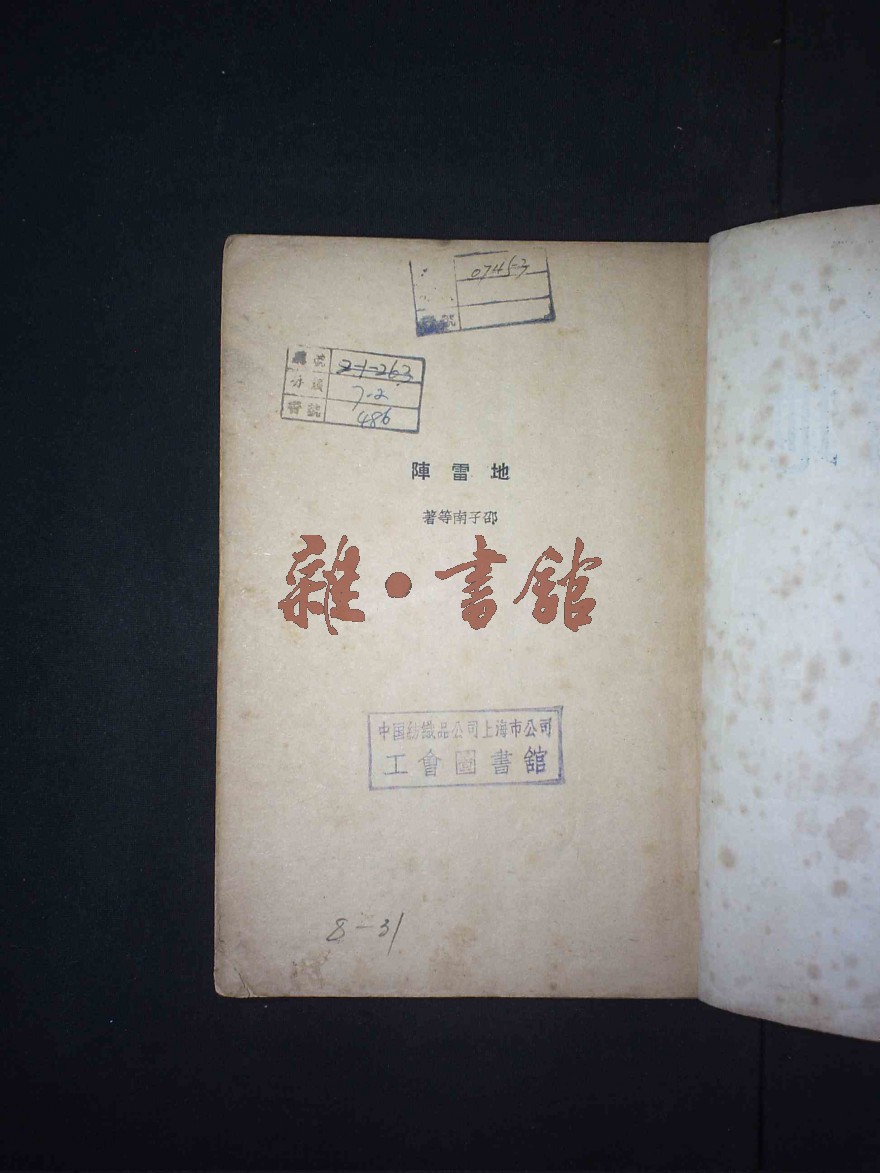 號
號 2-1-263
分類 7·2
書號 486
地雷陣
邵子南等著
雜·書館
中国紡織品公司上海市公司
工會圖書館
8-31